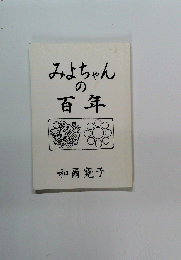 みよちゃん
の
百年
和西寛子